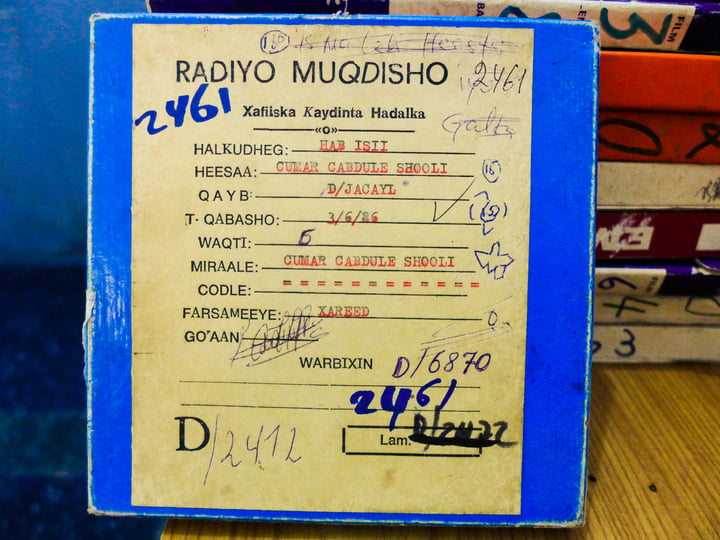 RADIYO MUQDISHO 2461
2461
Xafiiska Kaydinta Hadalka
«o»
HALKUDHEG: HAB ISII
HEESAA: CUMAR CABDULE SHOOLI 15
QAYB: D/JACAYL
T. QABASHO: 3/6/86
WAQTI: 6
MIRAALE: CUMAR CABDULE SHOOLI
CODLE: = = = = = = = = = = = =
FARSAMEEYE: XAREED
GO'AAN:
WARBIXIN D/6870
2461
D/2412
Lam.
FILM
3
0
64
03